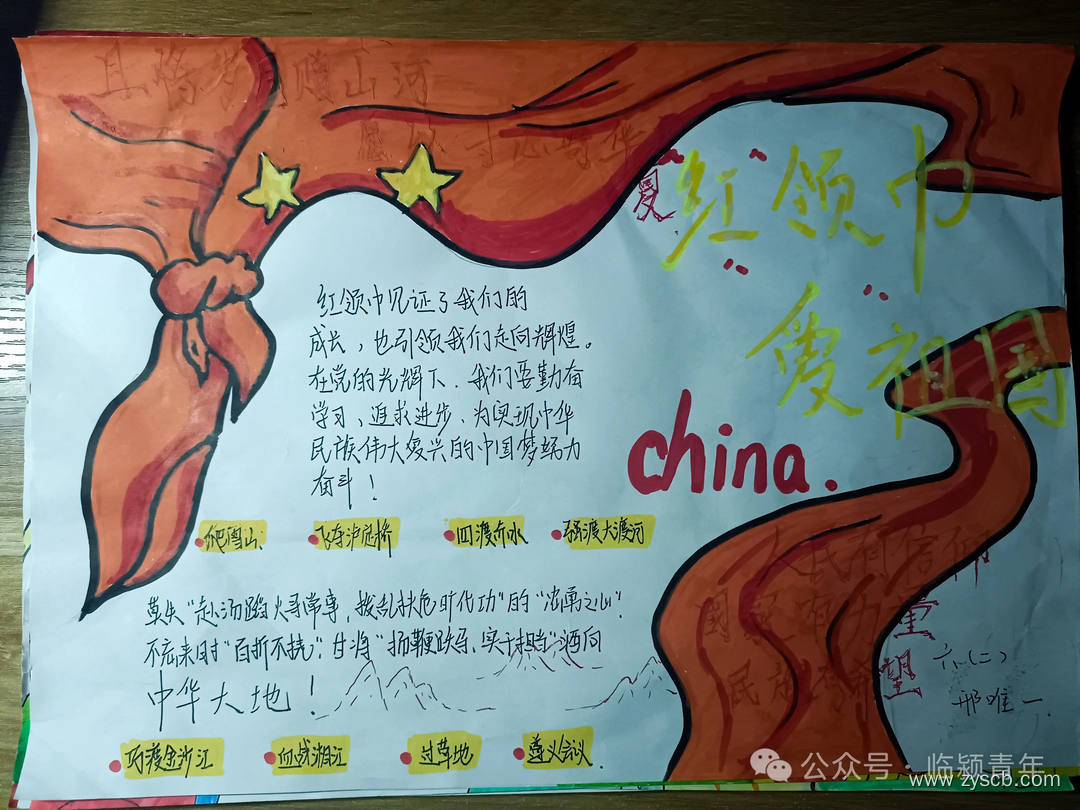 山河
爱
红领巾
爱祖国
红领巾见证了我们的
成长，也引领我们走向辉煌。
在党的光辉下．我们要勤奋
学习、追求进步、为实现中华
民族伟大复兴的中国梦努力
奋斗！
china.
爬雪山
飞夺泸定桥
四渡赤水
强渡大渡河
莫失“赴汤蹈火寻常事，拨乱扶危时代功”的“济南之心”！
不忘来时“百折不挠”．甘将“扬鞭跃马、实干担当”洒向
中华大地！
人民有信仰
国家有力量
民族有希望
六（二）
邢唯一
巧渡金沙江
血战湘江
过草地
遵义会议
公众号·临颍青年
www.zyscb.com